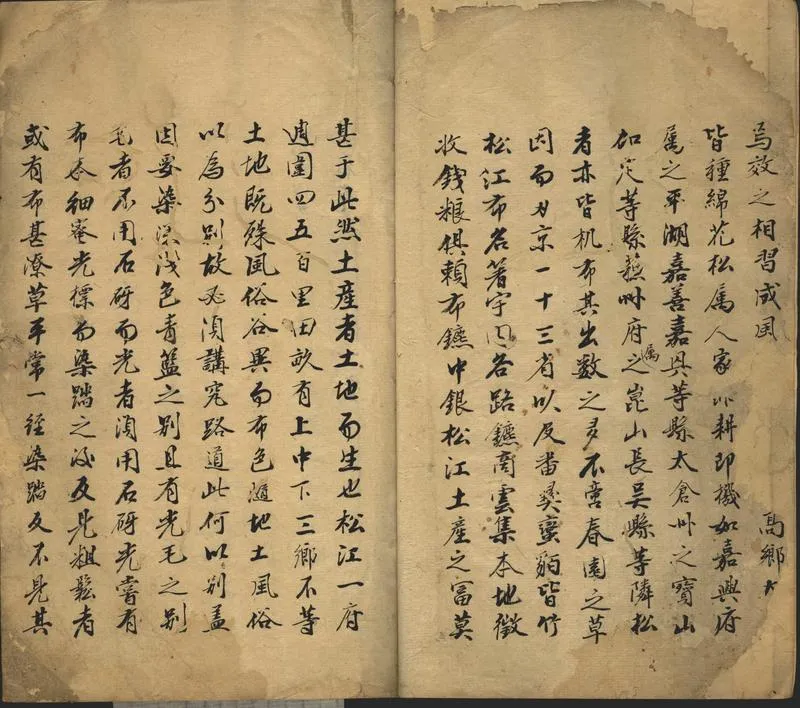 焉效之相習成風　　高鄉大
皆種綿花松属人家非耕即機如嘉興府
属之平湖嘉善嘉具等縣太倉州之寶山
加定等縣蘇州府之属崑山長吴縣等隣松
者亦皆机布其出数之多不啻春園之草
因而刀京一十三省以及畨彛蠻貊皆竹
松江布名著宇内各路鑣商雲集本地徵
收錢粮俱頼布鑣中銀松江土産之富莫
甚于此然土産者土地而生也松江一府
週圍四五百里田畝有上中下三鄉不等
土地既殊風俗谷異而布色随地土風俗
以為分别故必湏講究路道此何以别盖
因要染深浅色青藍之别且有光毛之别
毛者不用石砑而光者湏用石砑光嘗有
布本細密光標而染踹之後反見粗鬆者
或有布甚潦草平常一経染踹反不見其